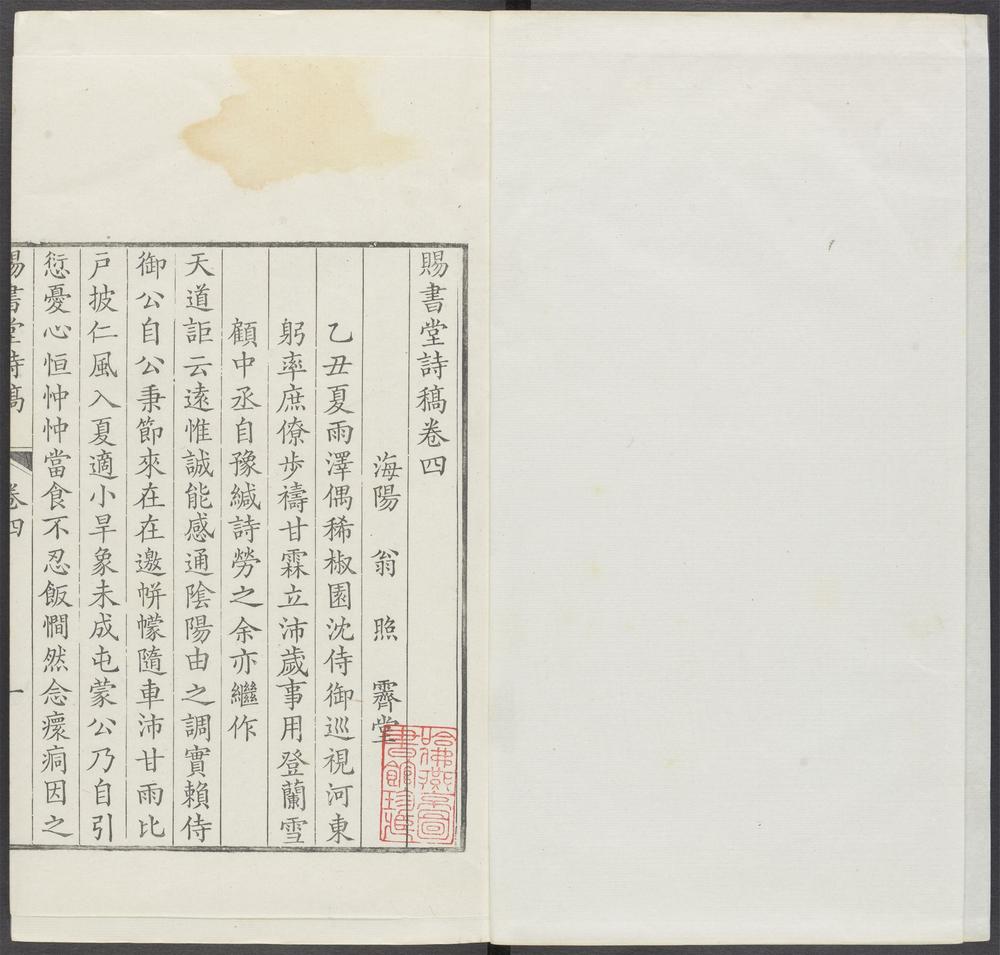 賜書堂詩稿卷四
海陽 翁照 霽堂
乙丑夏雨澤偶稀椒園沈侍御巡視河東
躬率庶僚步禱甘霖立沛歲事用登蘭雪
顧中丞自豫緘詩勞之余亦繼作
天道詎云遠惟誠能感通陰陽由之調實賴侍
御公自公秉節來在在邀帡幪隨車沛甘雨比
戸披仁風入夏適小旱象未成屯蒙公乃自引
愆憂心恒忡忡當食不忍飯憪然念瘝痌因之
賜書堂詩稿 卷四 一
哈佛燕京圖
書館珍藏